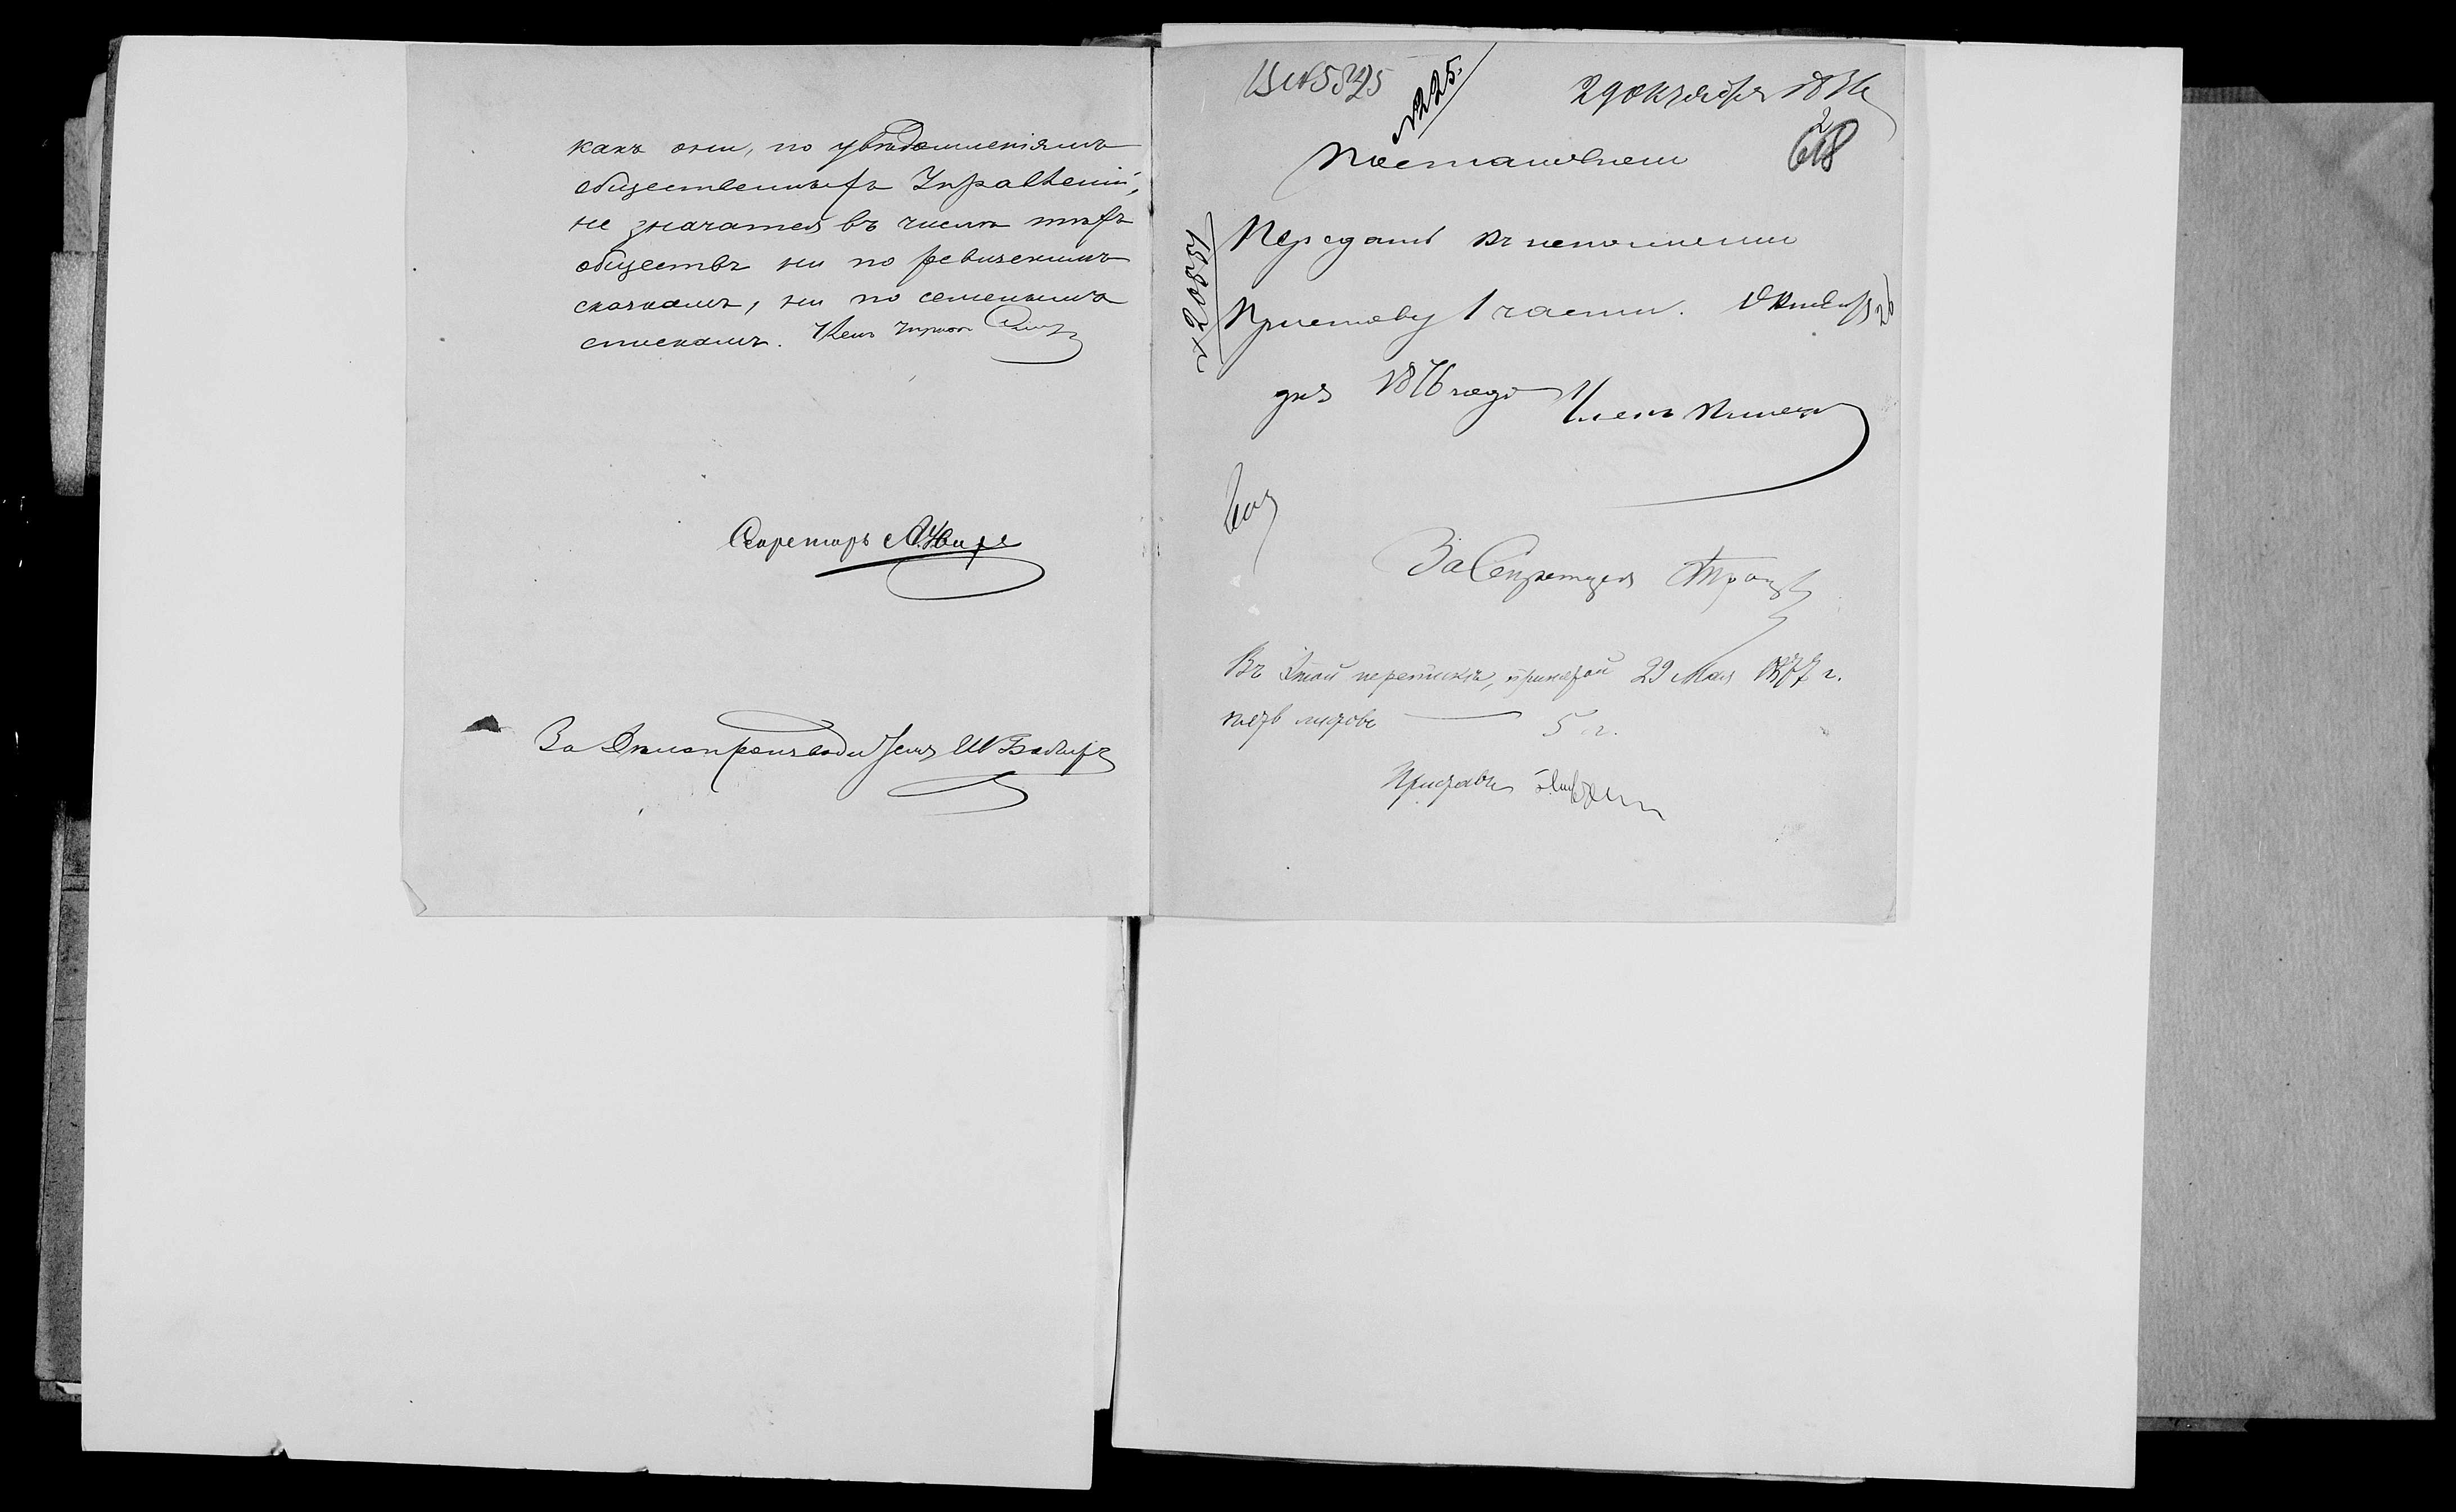 какъ они, по увѣдомленіямъ
общественныхъ Управленій,
не значатся въ числѣ тѣхъ
обществъ ни по ревизскимъ
сказкамъ, ни по семейнымъ
спискамъ.
Секретарь
За Дѣлопроизводителя
№ 225.
29 октября 1876
2
618
Постановлено
№ 20851
Передать къ исполненію
Приставу 1 части. Октября 26
дня 1876 года Членъ
За Секретаря
Въ этой перепискѣ, принятой 29 Мая 1877 г.
пять листовъ — 5 л.
Приставъ